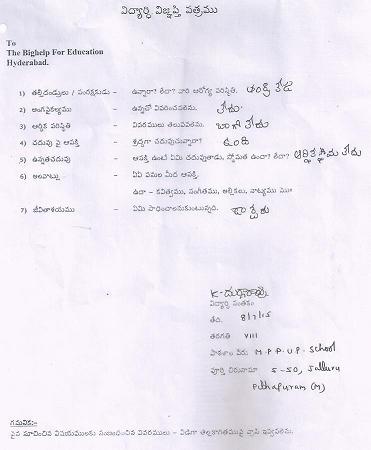 విద్యార్థి విజ్ఞప్తి పత్రము
To
The Bighelp For Education
Hyderabad.
1) తల్లిదండ్రులు / సంరక్షకుడు - ఉన్నారా? లేదా? వారి ఆరోగ్య పరిస్థితి. తండ్రి లేడు
2) అంగవైకల్యము - ఉన్నచో వివరించవలెను. లేదు.
3) ఆర్థిక పరిస్థితి - వివరములు తెలుపవలెను. బాగా లేదు
4) చదువు పై ఆసక్తి - శ్రద్ధగా చదువుచున్నారా? ఉంది
5) ఉన్నతచదువు - ఆసక్తి ఉంటే ఏమి చదువుతాడు, స్తోమత ఉందా? లేదా? ఆర్థిక లేదు
6) అలవాట్లు - ఏఏ పనుల మీద ఆసక్తి.
ఉదా - కవిత్వము, సంగీతము, అల్లికలు, నాట్యము
7) జీవితాశయము - ఏమి సాధించాలనుకుంటున్నది.
K-దుర్గారావు
విద్యార్థి సంతకం
తేది. 8/7/15
తరగతి VIII
పాఠశాల పేరు M.P.P.U.P. School
పూర్తి చిరునామా 5-50, Jalluru
Pithapuram (M)
గమనిక:-
పైన సూచించిన విషయములకు సంబంధించిన వివరములు - విడిగా తెల్లకాగితముపై వ్రాసి ఇవ్వవలెను.